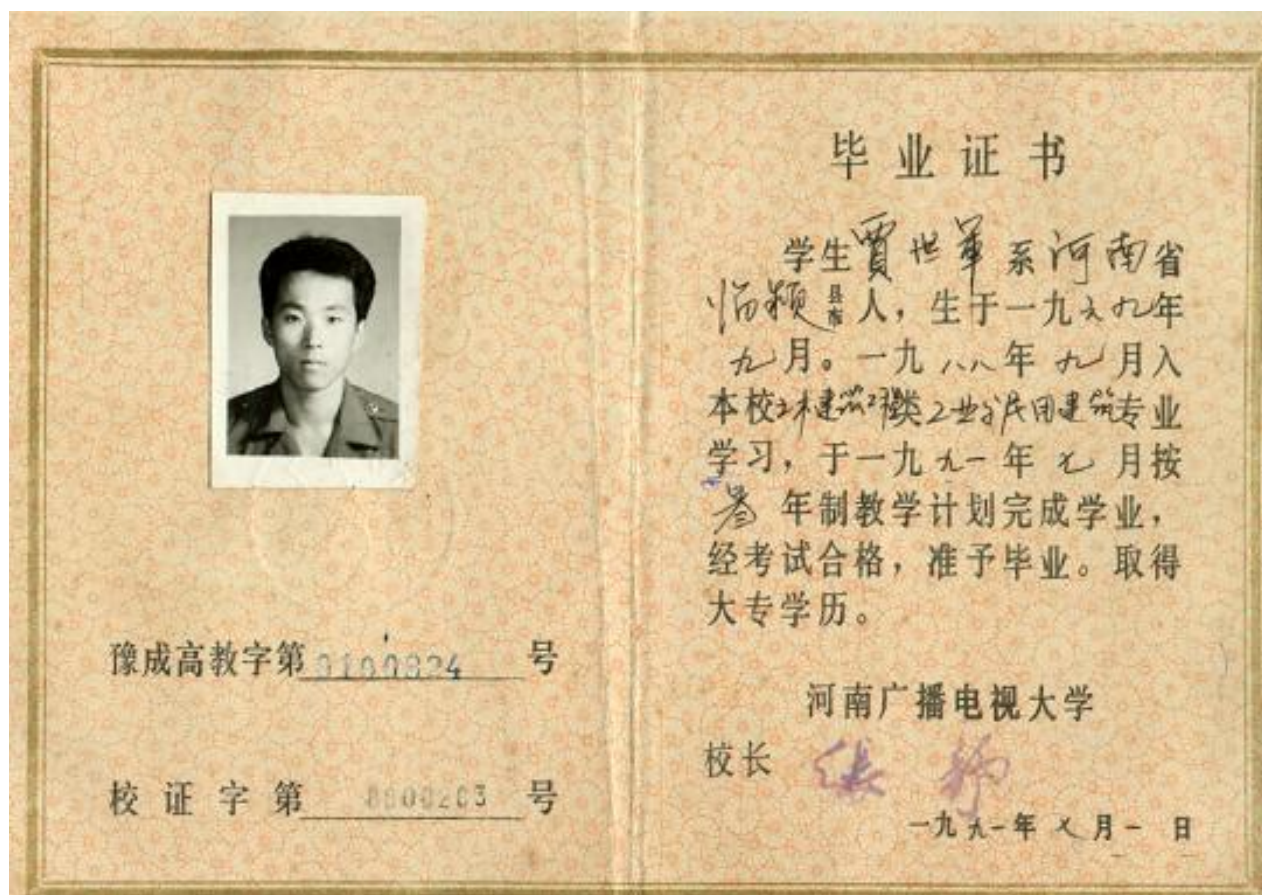 豫成高教字第0100824号
校证字第8800203号
毕业证书
学生贾世军系河南省
临颍县市人，生于一九六九年
九月。一九八八年九月入
本校土木建筑工程类工业与民用建筑专业
学习，于一九九一年七月按
叁年制教学计划完成学业，
经考试合格，准予毕业。取得
大专学历。
河南广播电视大学
校长 张
一九九一年七月一日